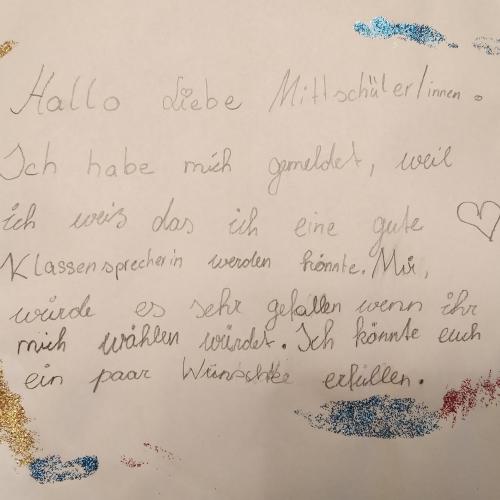 Hallo Liebe Mittschüler/innen.
Ich habe mich gemeldet, weil
ich weis das ich eine gute
Klassensprecherin werden könnte. Mir,
würde es sehr gefallen wenn ihr
mich wählen würdet. Ich könnte euch
ein paar Wünsche erfüllen.